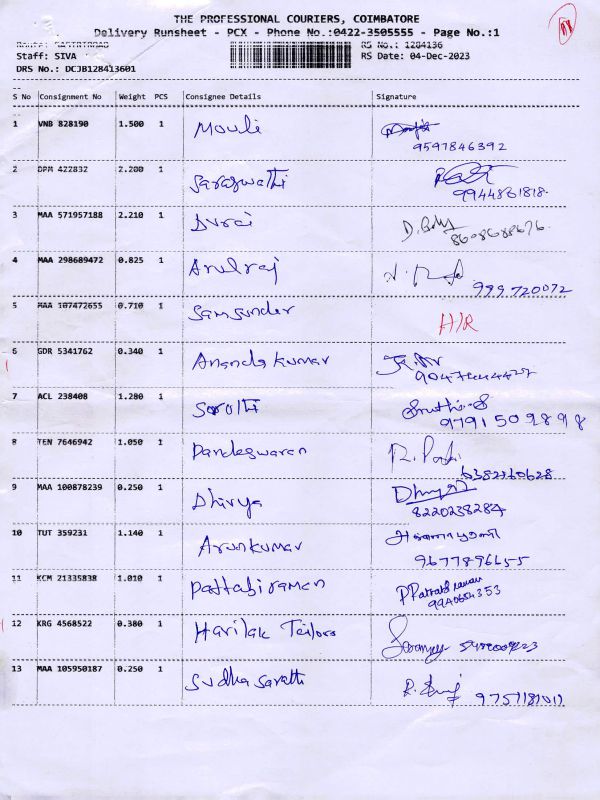 THE PROFESSIONAL COURIERS, COIMBATORE
Delivery Runsheet - PCX - Phone No.:0422-3505555 - Page No.:1
RS No.: 1284136
Staff: SIVA RS Date: 04-Dec-2023
DRS No.: DCJB128413601
S No Consignment No Weight PCS Consignee Details Signature
1 VNB 828190 1.500 1 Mouli
9597846392
2 DPM 422832 2.200 1 Saraswathi
9944831818.
3 MAA 571957188 2.210 1 Durai
4 MAA 298689472 0.825 1 Arulraj
999720072
5 MAA 107472655 0.710 1 Samsunder H/R
6 GDR 5341762 0.340 1 Anandakumar
7 ACL 238408 1.280 1 Sruthi.S
9791509898
8 TEN 7646942 1.050 1 Pandeswaran
6382160628
9 MAA 100878239 0.250 1 Dhivya
8220238284
10 TUT 359231 1.140 1 Arunkumar
9677896655
11 KCM 21335838 1.010 1 Pattabiraman P Pattabiraman
12 KRG 4568522 0.380 1 Harilak Teilors
13 MAA 105950187 0.250 1 Sudha Sarathi